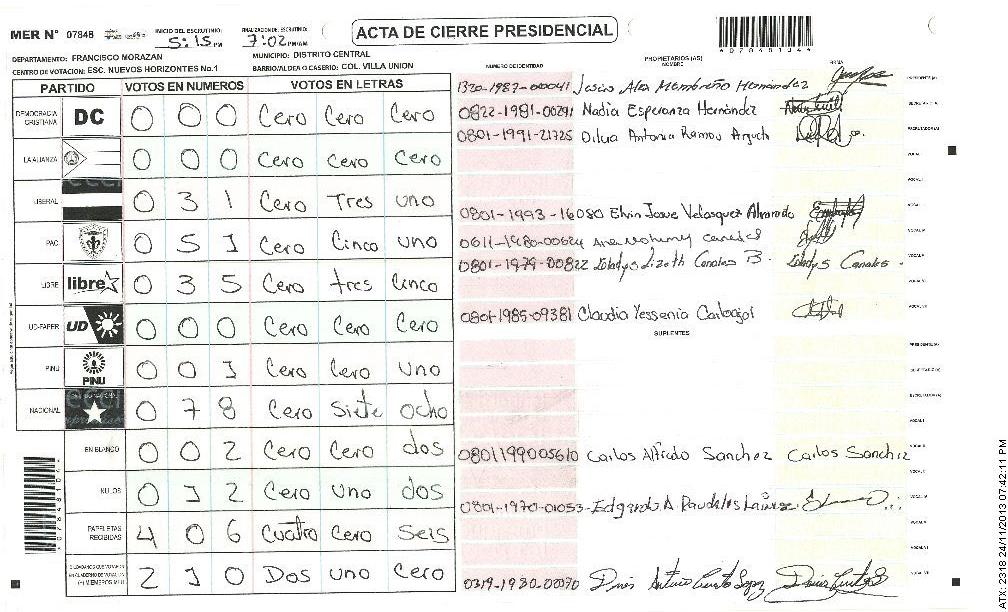 MER Nº 07848 INICIO DEL ESCRUTINIO: 5:15 PM FINALIZACION DE ESCRUTINIO: 7:02 PM/AM ACTA DE CIERRE PRESIDENCIAL
DEPARTAMENTO: FRANCISCO MORAZAN MUNICIPIO: DISTRITO CENTRAL
CENTRO DE VOTACION: ESC. NUEVOS HORIZONTES No.1 BARRIO/ALDEA O CASERIO: COL. VILLA UNION
PARTIDO VOTOS EN NUMEROS VOTOS EN LETRAS
DEMOCRACIA CRISTIANA DC 0 0 0 Cero Cero Cero
LA ALIANZA 0 0 0 Cero Cero Cero
LIBERAL 0 3 1 Cero Tres uno
PAC 0 5 1 Cero Cinco uno
LIBRE libre 0 3 5 Cero tres Cinco
UD-FAPER UD 0 0 0 Cero Cero Cero
PINU PINU 0 0 1 Cero Cero uno
NACIONAL 0 7 8 Cero Siete ocho
EN BLANCO 0 0 2 Cero Cero dos
NULOS 0 1 2 Cero uno dos
PAPELETAS RECIBIDAS 4 0 6 Cuatro Cero Seis
CIUDADANOS QUE VOTARON 2 1 0 Dos uno Cero
NUMERO DE IDENTIDAD PROPIETARIOS (AS) NOMBRE FIRMA
1320-1987-00041 Jesus Alex Membreño Hernandez PRESIDENTE (A)
0822-1981-00291 Nadia Esperanza Hernández SECRETARIO (A)
0801-1991-21725 Antonia ESCRUTADOR (A)
VOCAL I
0801-1993-16080 Elvin Josue Velasquez Alvarado
0611-1980-00624
0801-1979-00822 Gladys Lizeth Canales B. Gladys Canales
0801-1985-09381 Claudia Yessenia Carbajal
SUPLENTES
PRESIDENTE (A)
SECRETARIO (A)
ESCRUTADOR (A)
VOCAL I
0801199005610 Carlos Alfredo Sanchez Carlos Sanchez
0801-1970-01053 Edgardo A. Raudales
0319-1980-00070 Arturo
ATX: 2318 24/11/2013 07:42:11 PM